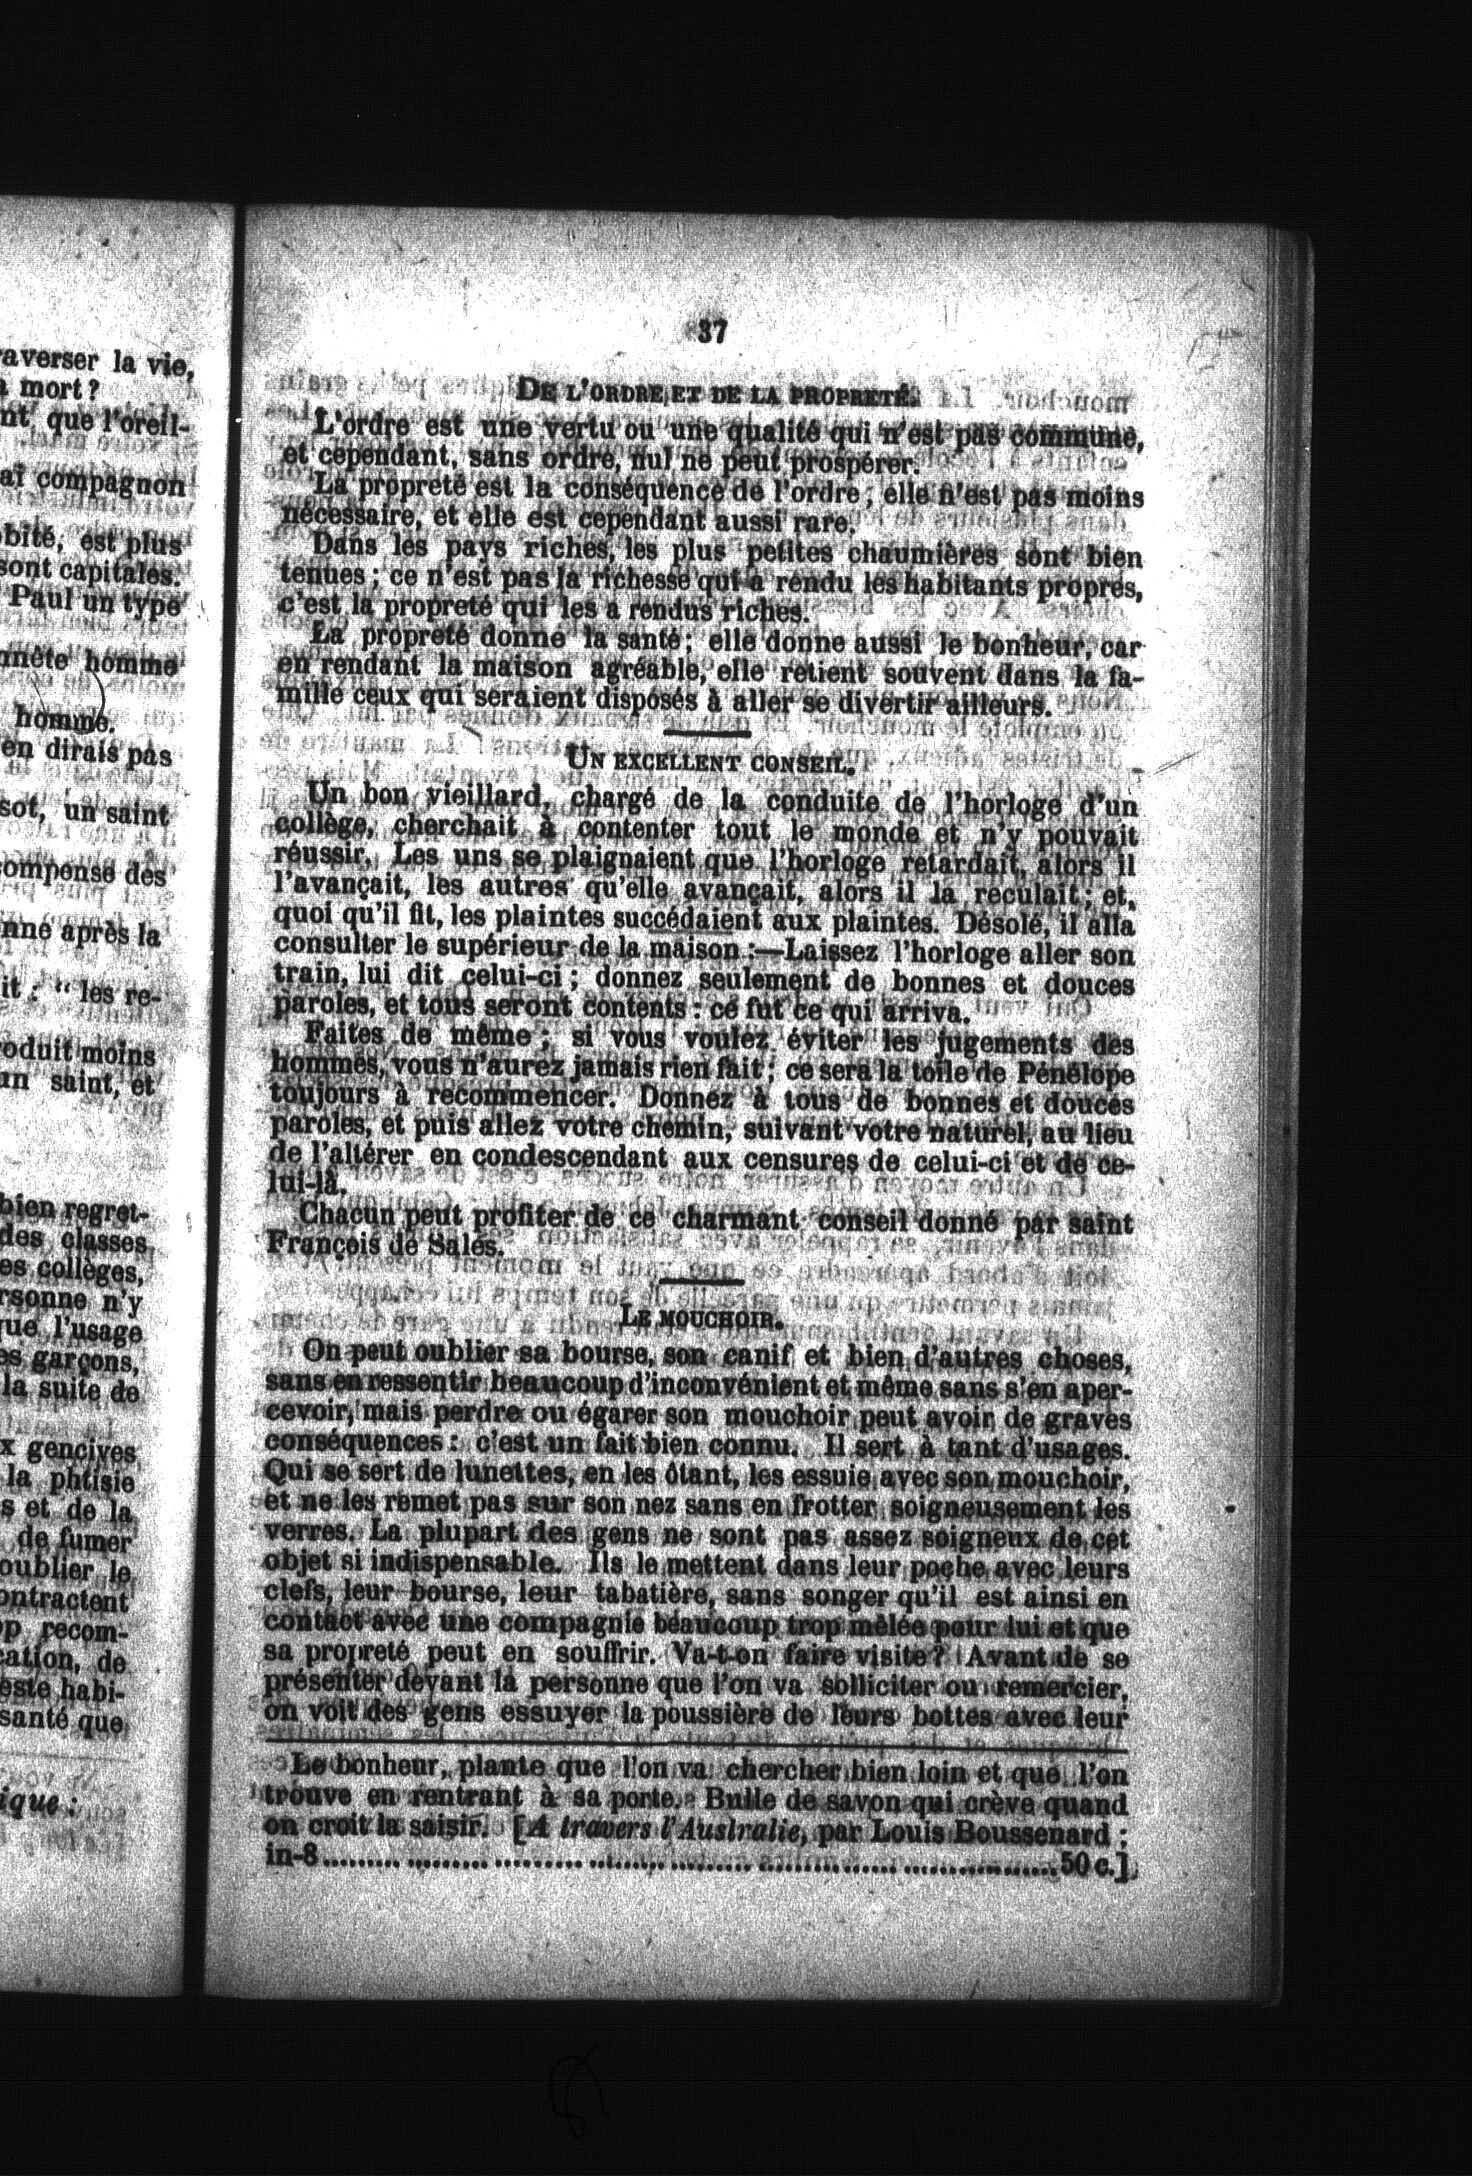 raverser la vie,
mort?
que l'oreil-
compagnon
est plus
sont capitales.
Paul un type
homme
homme.
en dirais pas
sot, un saint
compense des
après la
it : “ les re-
moins
saint, et
bien regret-
des classes
es collèges,
n'y
que l'usage
es garçons,
la suite de
x gencives
la phtisie
s et de la
de fumer
oublier le
ontractent
recom-
cation, de
habi-
santé que
ique :
37
DE L'ORDRE ET DE LA PROPRETÉ.
L'ordre est une vertu ou une qualité qui n'est pas commune,
et cependant, sans ordre, nul ne peut prospérer.
La propreté est la conséquence de l'ordre ; elle n'est pas moins
nécessaire, et elle est cependant aussi rare.
Dans les pays riches, les plus petites chaumières sont bien
tenues ; ce n'est pas la richesse qui a rendu les habitants propres,
c'est la propreté qui les a rendus riches.
La propreté donne la santé ; elle donne aussi le bonheur, car
en rendant la maison agréable, elle retient souvent dans la fa-
mille ceux qui seraient disposés à aller se divertir ailleurs.
UN EXCELLENT CONSEIL.
Un bon vieillard, chargé de la conduite de l'horloge d'un
collège, cherchait à contenter tout le monde et n'y pouvait
réussir. Les uns se plaignaient que l'horloge retardait, alors il
l'avançait, les autres qu'elle avançait, alors il la reculait ; et,
quoi qu'il fit, les plaintes succédaient aux plaintes. Désolé, il alla
consulter le supérieur de la maison :—Laissez l'horloge aller son
train, lui dit celui-ci ; donnez seulement de bonnes et douces
paroles, et tous seront contents : ce fut ce qui arriva.
Faites de même ; si vous voulez éviter les jugements des
hommes, vous n'aurez jamais rien fait ; ce sera la toile de Pénélope
toujours à recommencer. Donnez à tous de bonnes et douces
paroles, et puis allez votre chemin, suivant votre naturel, au lieu
de l'altérer en condescendant aux censures de celui-ci et de ce-
lui-là.
Chacun peut profiter de ce charmant conseil donné par saint
François de Sales.
LE MOUCHOIR.
On peut oublier sa bourse, son canif et bien d'autres choses,
sans en ressentir beaucoup d'inconvénient et même sans s'en aper-
cevoir, mais perdre ou égarer son mouchoir peut avoir de graves
conséquences : c'est un fait bien connu. Il sert à tant d'usages.
Qui se sert de lunettes, en les ôtant, les essuie avec son mouchoir,
et ne les remet pas sur son nez sans en frotter soigneusement les
verres. La plupart des gens ne sont pas assez soigneux de cet
objet si indispensable. Ils le mettent dans leur poche avec leurs
clefs, leur bourse, leur tabatière, sans songer qu'il est ainsi en
contact avec une compagnie beaucoup trop mêlée pour lui et que
sa propreté peut en souffrir. Va-t-on faire visite? Avant de se
présenter devant la personne que l'on va solliciter ou remercier,
on voit des gens essuyer la poussière de leurs bottes avec leur
Le bonheur, plante que l'on va chercher bien loin et que l'on
trouve en rentrant à sa porte. Bulle de savon qui crève quand
on croit la saisir. [A travers l'Australie, par Louis Boussenard ;
in-8 ........ ........ ......... ........ ........ ........ ........ ................50 c.]